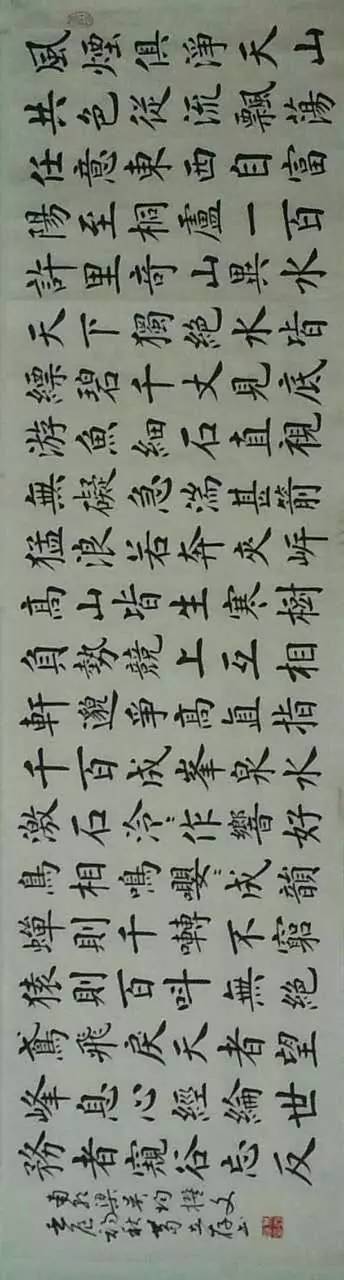 風煙俱淨天山
共色從流飄蕩
任意東西自富
陽至桐廬一百
許里奇山異水
天下獨絕水皆
縹碧千丈見底
游魚細石直視
無礙急湍甚箭
猛浪若奔夾岸
高山皆生寒樹
負勢競上互相
軒邈爭高直指
千百成峯泉水
激石泠〻作響好
鳥相鳴嚶〻成韻
蟬則千囀不窮
猿則百叫無絕
鳶飛戾天者望
峰息心經綸世
務者窺谷忘反
梁吴均撰文
初秋葛立存